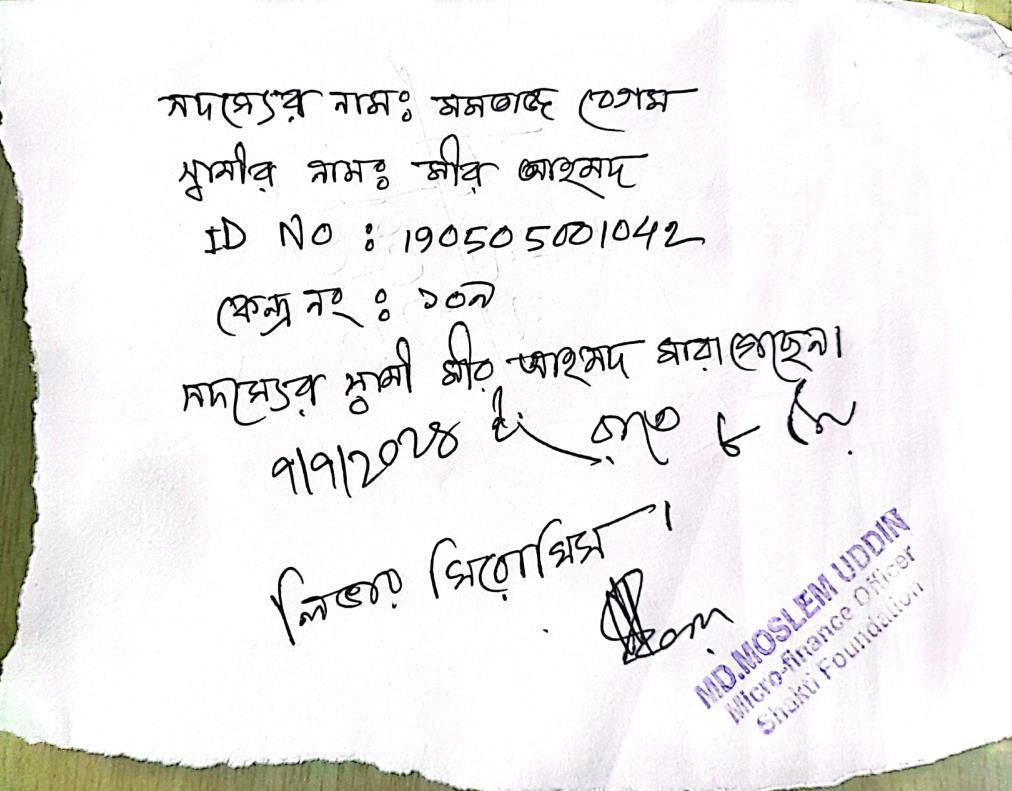 সদস্যের নামঃ মমতাজ বেগম
স্বামীর নামঃ মীর আহমদ
ID NO : 190505001042
কেন্দ্র নং : ১০৯
সদস্যের স্বামী মীর আহমদ মারা গেছেন।
৭/৭/২০২৪ ইং রাতে ৮
লিভার সিরোসিস।
MD.MOSLEM UDDIN
Micro-finance Officer
Shakti Foundation